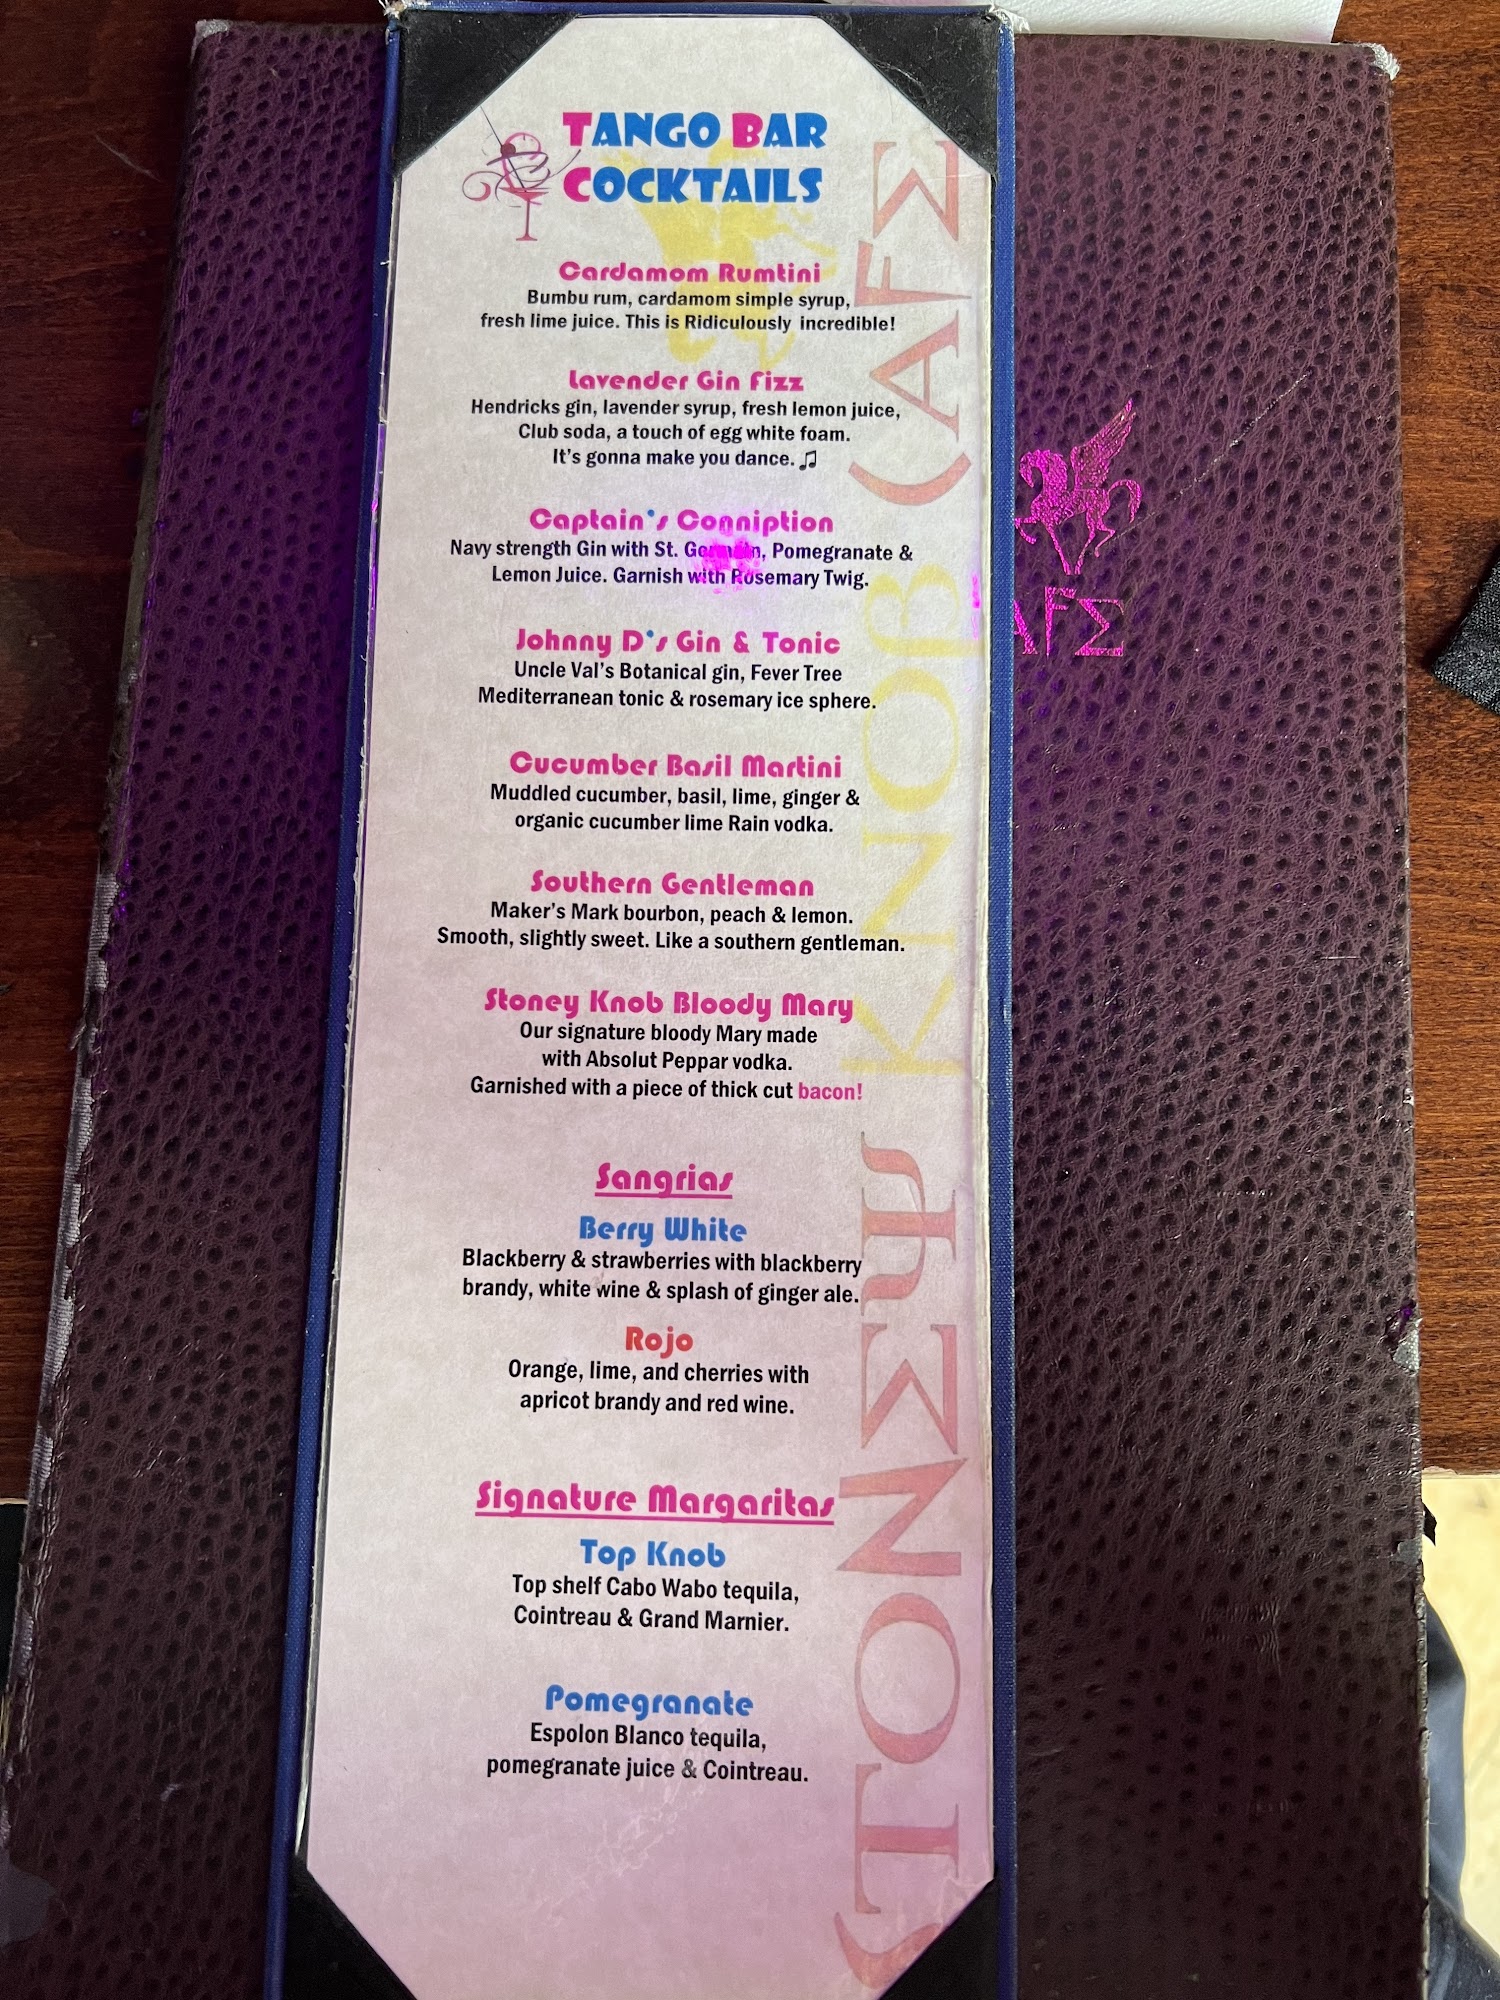 TANGO BAR
COCKTAILS
Cardamom Rumtini
Bumbu rum, cardamom simple syrup,
fresh lime juice. This is Ridiculously incredible!
Lavender Gin Fizz
Hendricks gin, lavender syrup, fresh lemon juice,
Club soda, a touch of egg white foam.
It's gonna make you dance. ♫
Captain's Conniption
Navy strength Gin with St. Germain, Pomegranate &
Lemon Juice. Garnish with Rosemary Twig.
Johnny D's Gin & Tonic
Uncle Val's Botanical gin, Fever Tree
Mediterranean tonic & rosemary ice sphere.
Cucumber Basil Martini
Muddled cucumber, basil, lime, ginger &
organic cucumber lime Rain vodka.
Southern Gentleman
Maker's Mark bourbon, peach & lemon.
Smooth, slightly sweet. Like a southern gentleman.
Stoney Knob Bloody Mary
Our signature bloody Mary made
with Absolut Peppar vodka.
Garnished with a piece of thick cut bacon!
Sangrias
Berry White
Blackberry & strawberries with blackberry
brandy, white wine & splash of ginger ale.
Rojo
Orange, lime, and cherries with
apricot brandy and red wine.
Signature Margaritas
Top Knob
Top shelf Cabo Wabo tequila,
Cointreau & Grand Marnier.
Pomegranate
Espolon Blanco tequila,
pomegranate juice & Cointreau.
STONΣΨ KNOβ CAFΣ
AFΣ